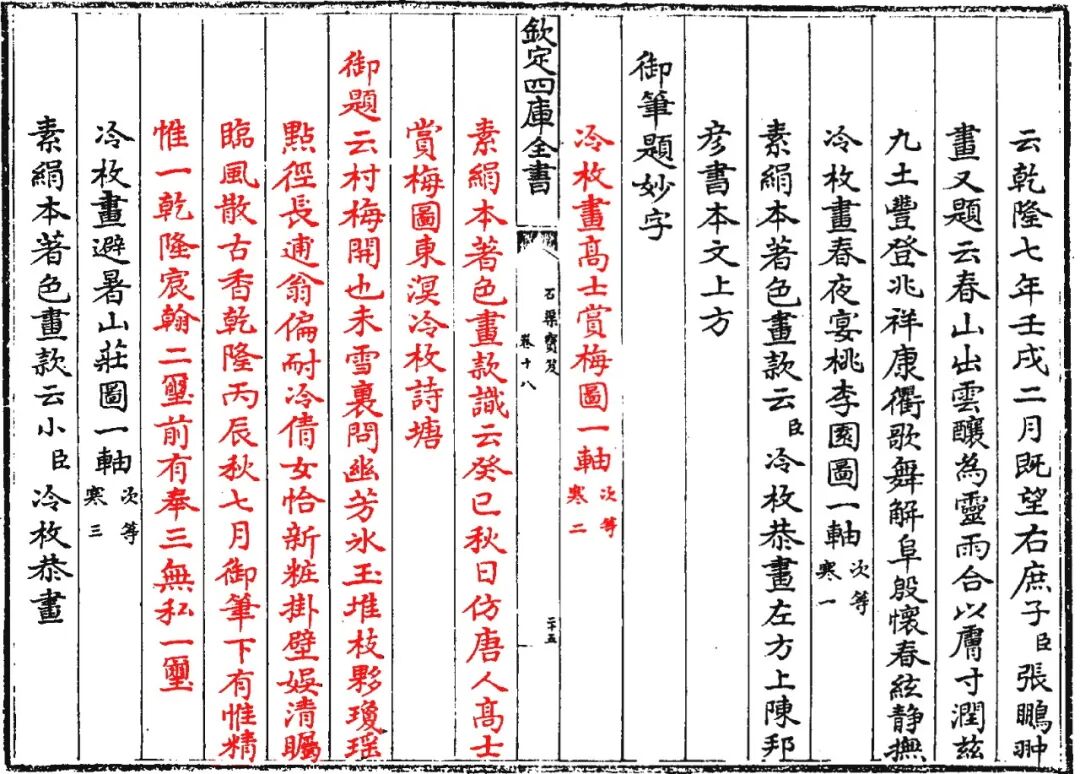 云乾隆七年壬戌二月既望右庶子臣張鵬翀
畫又題云春山出雲釀為靈雨合以膚寸潤茲
九土豐登兆祥康衢歌舞解阜殷懷春絃静撫
冷枚畫春夜宴桃李園圖一軸次等寒一
素絹本著色畫款云臣冷枚恭畫左方上陳邦
彦書本文上方
御筆題妙字
冷枚畫高士賞梅圖一軸次等寒二
欽定四庫全書
石渠寶笈
卷十八
二十五
素絹本著色畫款識云癸巳秋日仿唐人高士
賞梅圖東溟冷枚詩塘
御題云村梅開也未雪裏問幽芳氷玉堆枝夥瓊瑶
點徑長逋翁偏耐冷倩女恰新粧掛壁娛清矚
臨風散古香乾隆丙辰秋七月御筆下有惟精
惟一乾隆宸翰二璽前有奉三無私一璽
冷枚畫避暑山莊圖一軸次等寒三
素絹本著色畫款云小臣冷枚恭畫